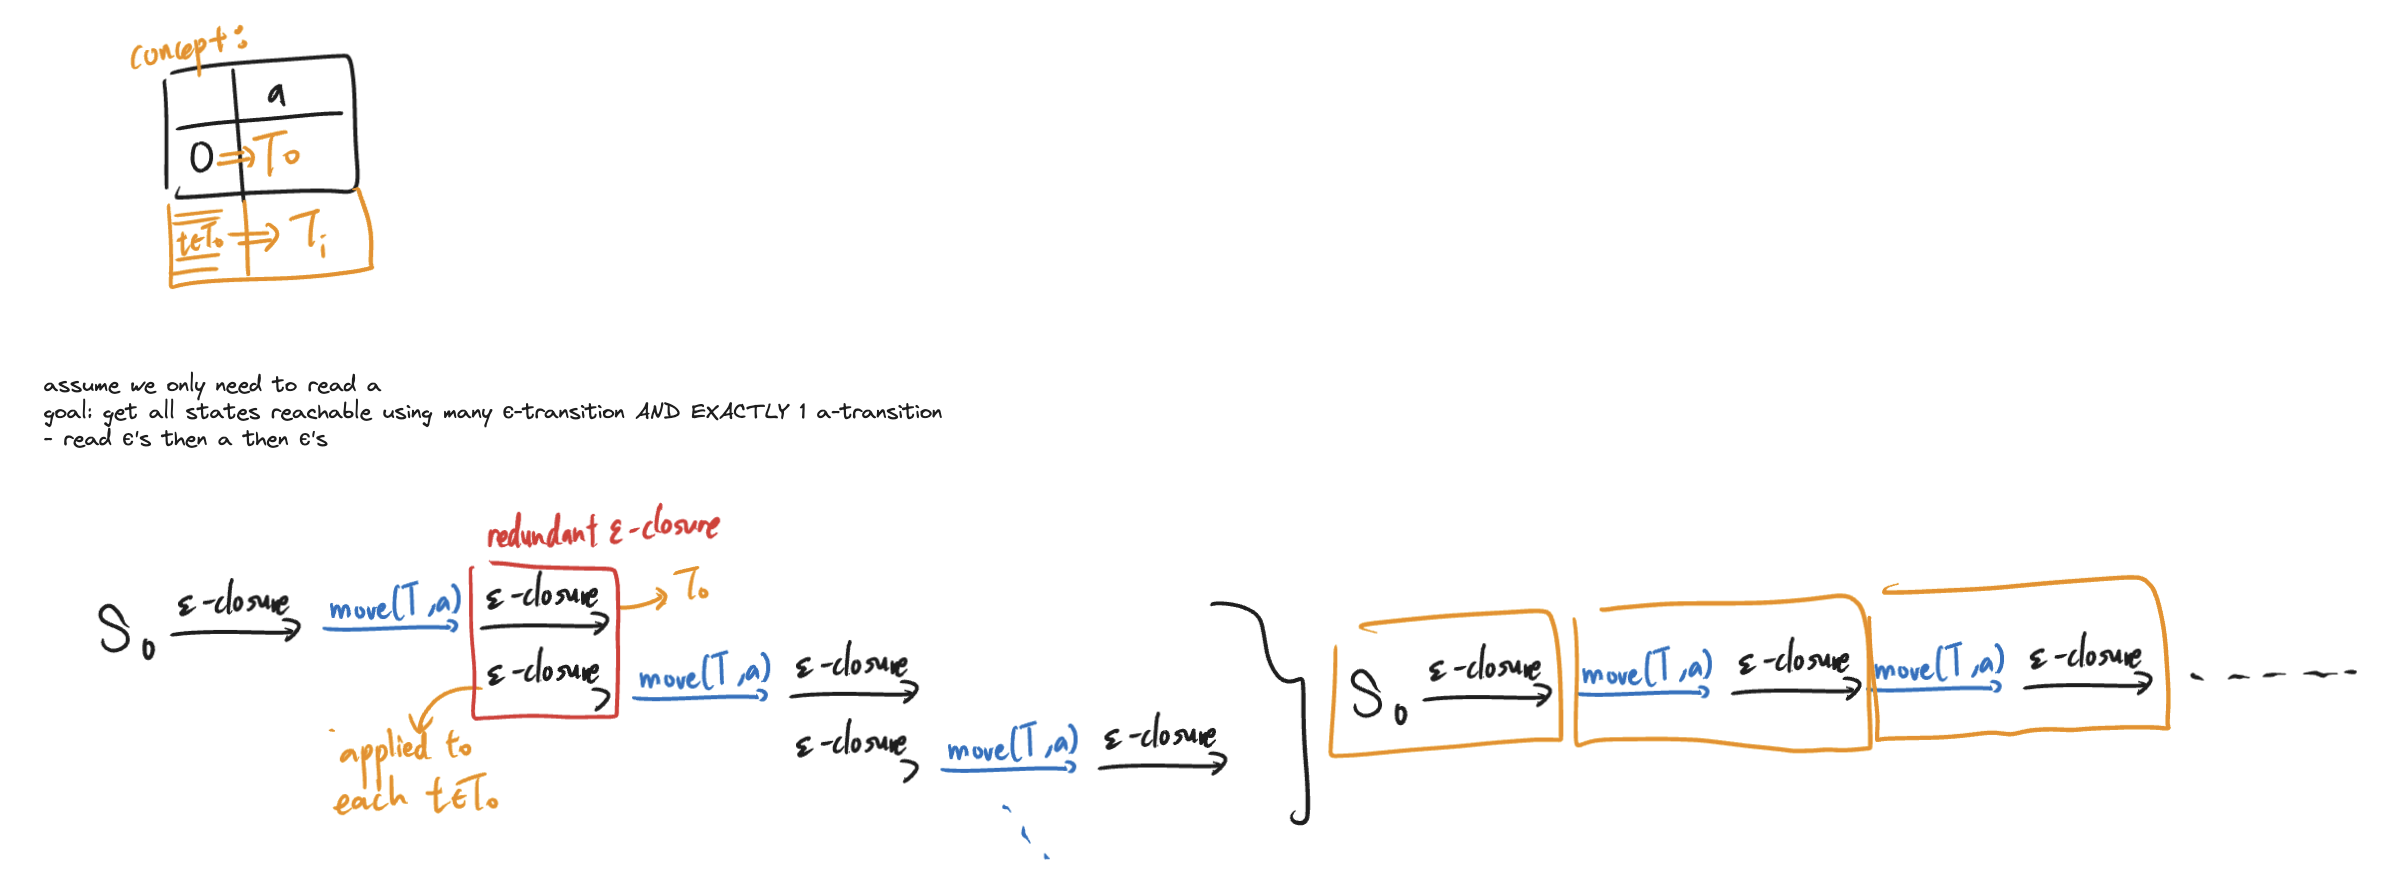 concept:
a
0 ⇒ T₀
t∈T₀ ⇒ Tᵢ
assume we only need to read a
goal: get all states reachable using many ε-transition AND EXACTLY 1 a-transition
- read ε's then a then ε's
redundant ε-closure
S₀ ε-closure move(T,a) ε-closure T₀
ε-closure move(T,a) ε-closure
applied to
each t∈T₀
ε-closure move(T,a) ε-closure
S₀ ε-closure move(T,a) ε-closure move(T,a) ε-closure